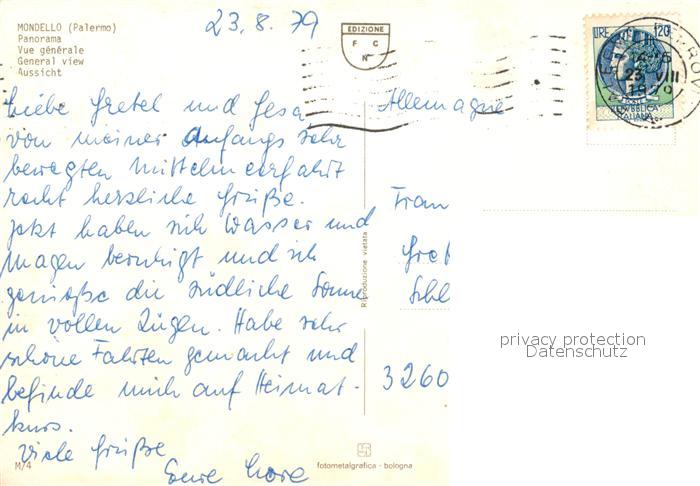 MONDELLO (Palermo)
Panorama
Vue générale
General view
Aussicht
23.8.79
EDIZIONE
F C
N
LIRE 120
23 VIII
1979
REPUBBLICA
ITALIANA
Liebe Gretel und Gesa
von meiner Anfangs sehr
bewegten Mittelmeerfahrt
recht herzliche Grüße.
Jetzt haben sich Wasser und
Magen beruhigt und ich
genieße die südliche Sonne
in vollen Zügen. Habe sehr
schöne Fahrten gemacht und
befinde mich auf Heimat-
kurs.
Viele Grüße
Eure Lore
Allemagne
Frau
Gret
Schl
3260
Riproduzione vietata
privacy protection
Datenschutz
M/4
fotometalgrafica - bologna